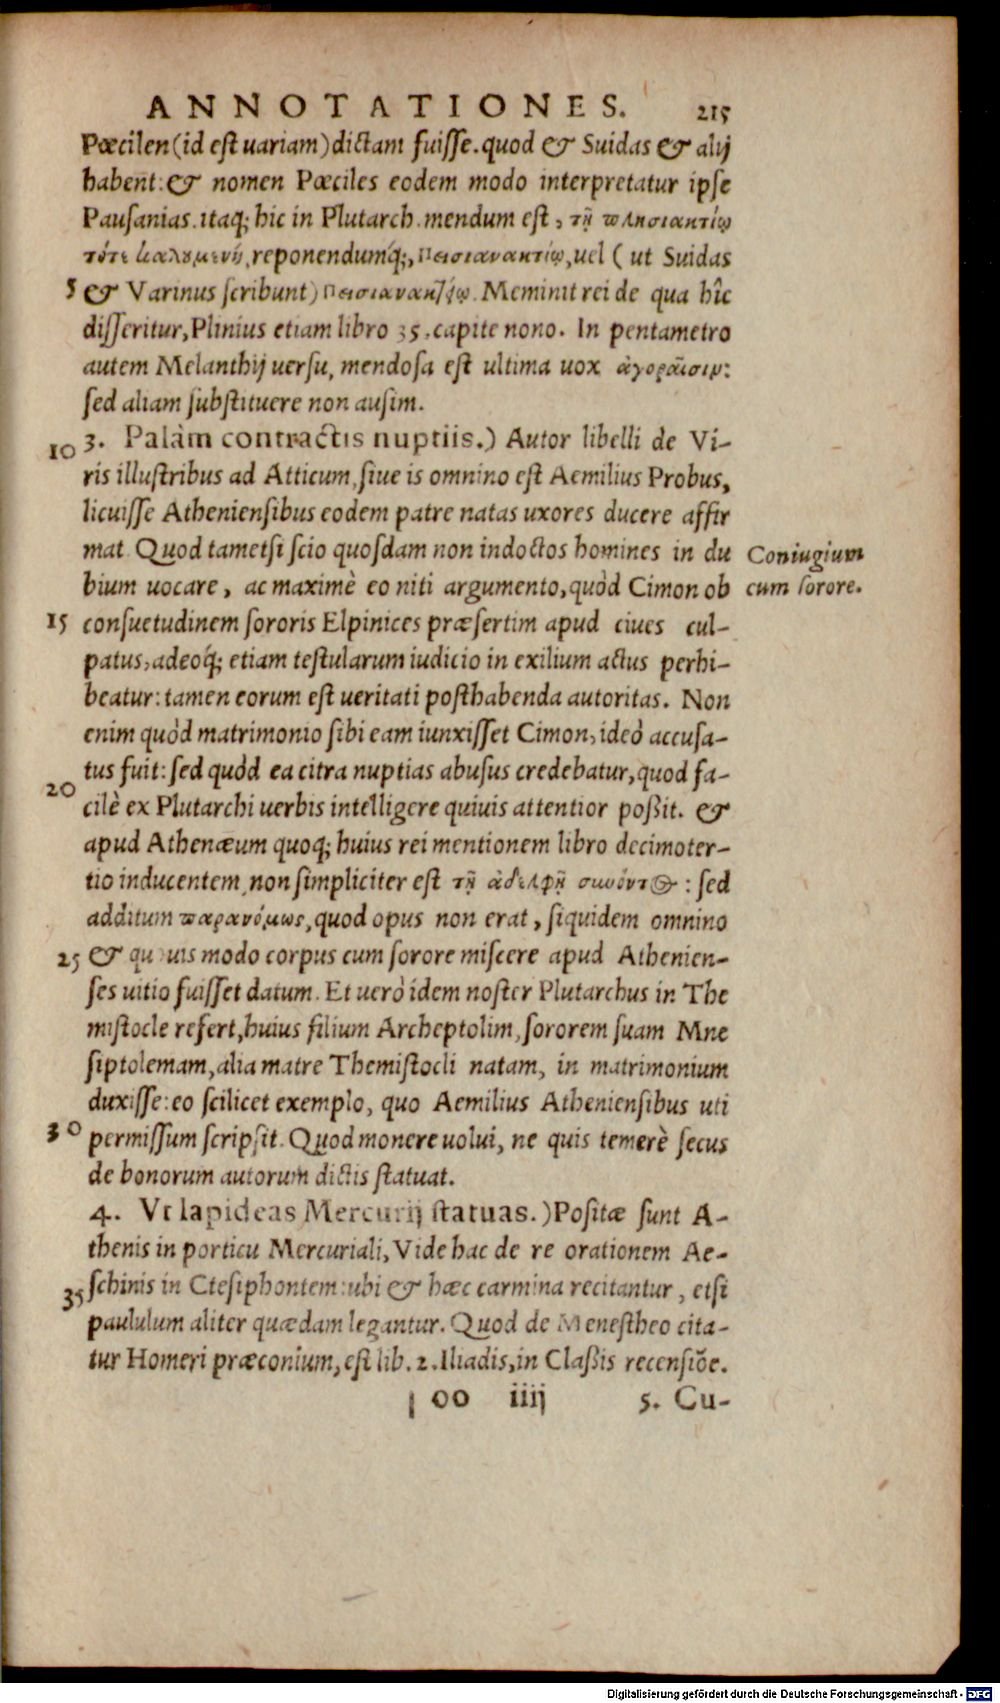 ANNOTATIONES. 215
Pœcilen (id est uariam) dictam fuisse. quod & Suidas & alij
habent: & nomen Pœciles eodem modo interpretatur ipse
Pausanias. itaq; hic in Plutarch. mendum est, τῇ πλησιακτίῳ
τότε καλουμενῃ, reponendumq́;, Πεισιανακτίῳ, uel ( ut Suidas
5 & Varinus scribunt) Πεισιανακτίῳ. Meminit rei de qua hîc
disseritur, Plinius etiam libro 35. capite nono. In pentametro
autem Melanthij uersu, mendosa est ultima uox ἀγορᾶισιμ:
sed aliam substituere non ausim.
10 3. Palàm contractis nuptiis.) Autor libelli de Vi-
ris illustribus ad Atticum, siue is omnino est Aemilius Probus,
licuisse Atheniensibus eodem patre natas uxores ducere affir
mat. Quod tametsi scio quosdam non indoctos homines in du
Coniugium
bium uocare, ac maximè eo niti argumento, quòd Cimon ob
cum sorore.
15 consuetudinem sororis Elpinices præsertim apud ciues cul-
patus, adeoq́; etiam testularum iudicio in exilium actus perhi-
beatur: tamen eorum est ueritati posthabenda autoritas. Non
enim quòd matrimonio sibi eam iunxisset Cimon, ideò accusa-
tus fuit: sed quòd ea citra nuptias abusus credebatur, quod fa-
20 cilè ex Plutarchi uerbis intelligere quiuis attentior poßit. &
apud Athenæum quoq; huius rei mentionem libro decimoter-
tio inducentem, non simpliciter est τῇ ἀδελφῇ συνόντος : sed
additum παρανόμως, quod opus non erat, siquidem omnino
25 & quouis modo corpus cum sorore miscere apud Athenien-
ses uitio fuisset datum. Et uerò idem noster Plutarchus in The
mistocle refert, huius filium Archeptolim, sororem suam Mne
siptolemam, alia matre Themistocli natam, in matrimonium
duxisse: eo scilicet exemplo, quo Aemilius Atheniensibus uti
30 permissum scripsit. Quod monere uolui, ne quis temerè secus
de bonorum autorum dictis statuat.
4. Vt lapideas Mercurij statuas.) Positæ sunt A-
thenis in porticu Mercuriali, Vide hac de re orationem Ae-
35 schinis in Ctesiphontem: ubi & hæc carmina recitantur, etsi
paululum aliter quædam legantur. Quod de Menestheo cita-
tur Homeri præconium, est lib. 2. Iliadis, in Claßis recensiõe.
oo iiij 5. Cu-
Digitalisierung gefördert durch die Deutsche Forschungsgemeinschaft - DFG